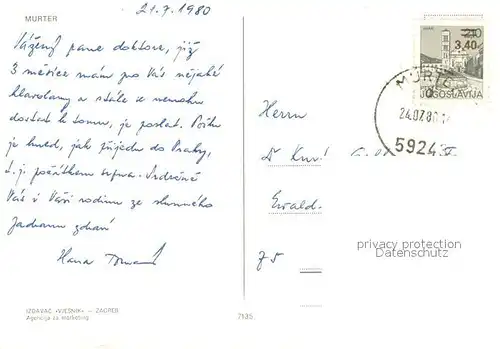 MURTER
21.7.1980
Vážený pane doktore, již
3 měsíce mám pro Vás nějaké
hlavolamy a stále se nemohu
dostat k tomu, je poslat. Pošlu
je hned, jak přijedu do Prahy,
t.j. počátkem srpna. Srdečně
Vás i Vaši rodinu ze slunného
Jadranu zdraví
Hana
210
3,40
JUGOSLAVIJA
MURTER
24.07.80
5924
Herrn
Dr
Ewald-
75
privacy protection
Datenschutz
IZDAVAČ »VJESNIK« – ZAGREB
Agencija za marketing
7135